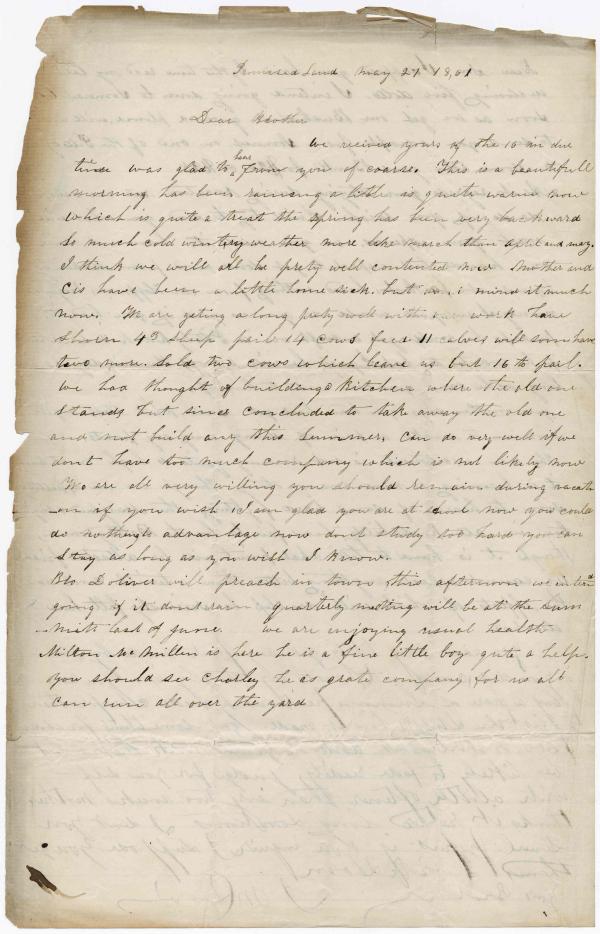 Promised Land May 21 1861
Dear Brother
we recived yours of the 10 in due
time was glad to hear from you of coarse. This is a beautifull
morning has been raineing a little is quite warm now
which is quite a treat the spring has been very backward
So much cold wintery weather more like march than april and may.
I think we will all be prety well contented now Mother and
Cis have been a little home sick. but do. i mind it much
now. We are geting a long prety well with our work have
Shorn 43 Sheep pail 14 cows feed 11 calves will soon have
two more. Sold two cows which leave us but 16 to pail.
we had thought of building a Kitchen where the old one
stands but since concluded to take away the old one
and not build any this Summer, Can do very well if we
dont have too much company which is not likely now
We are all very willing you should remain during vacati
on if you wish I am glad you are at now you could
do no advantage now dont study too hard you can
Stay as long as you wish I know.
Bro Doliver will preach in town this afternoon we intend
going if it dont rain quarterly meeting will be at the
last of June. we are enjoying usual health
Milton McMillen is here he is a fine little boy quite a help.
you should see Charley he as grate company for us all
can run all over the yard